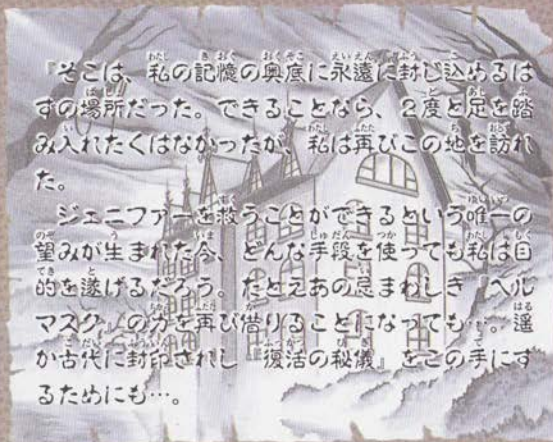 『そこは、私の記憶の奥底に永遠に封じ込めるは
ずの場所だった。できることなら、2度と足を踏
み入れたくはなかったが、私は再びこの地を訪れ
た。
ジェニファーを救うことができるという唯一の
望みが生まれた今、どんな手段を使っても私は目
的を遂げるだろう。たとえあの忌まわしき『ヘル
マスク』の力を再び借りることになっても…。遥
か古代に封印されし『復活の秘儀』をこの手にす
るためにも…。